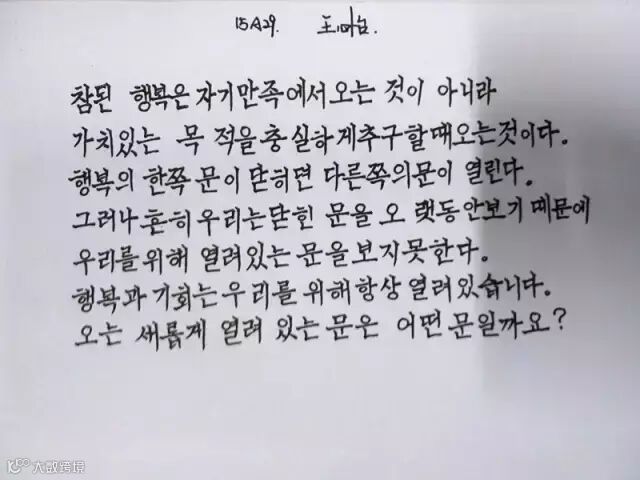 15A29. 王미남
참된 행복은 자기만족에서오는 것이 아니라
가치있는 목 적을충실하게추구할때오는것이다.
행복의 한쪽 문이 닫히면 다른쪽의문이 열린다.
그러나 흔히 우리는닫힌 문을 오 랫동안보기 때문에
우리를위해 열려있는 문을보지못한다.
행복과 기회는우리를위해항상열려있습니다.
오는 새롭게 열려 있는문은 어떤문일까요?
大数跨境